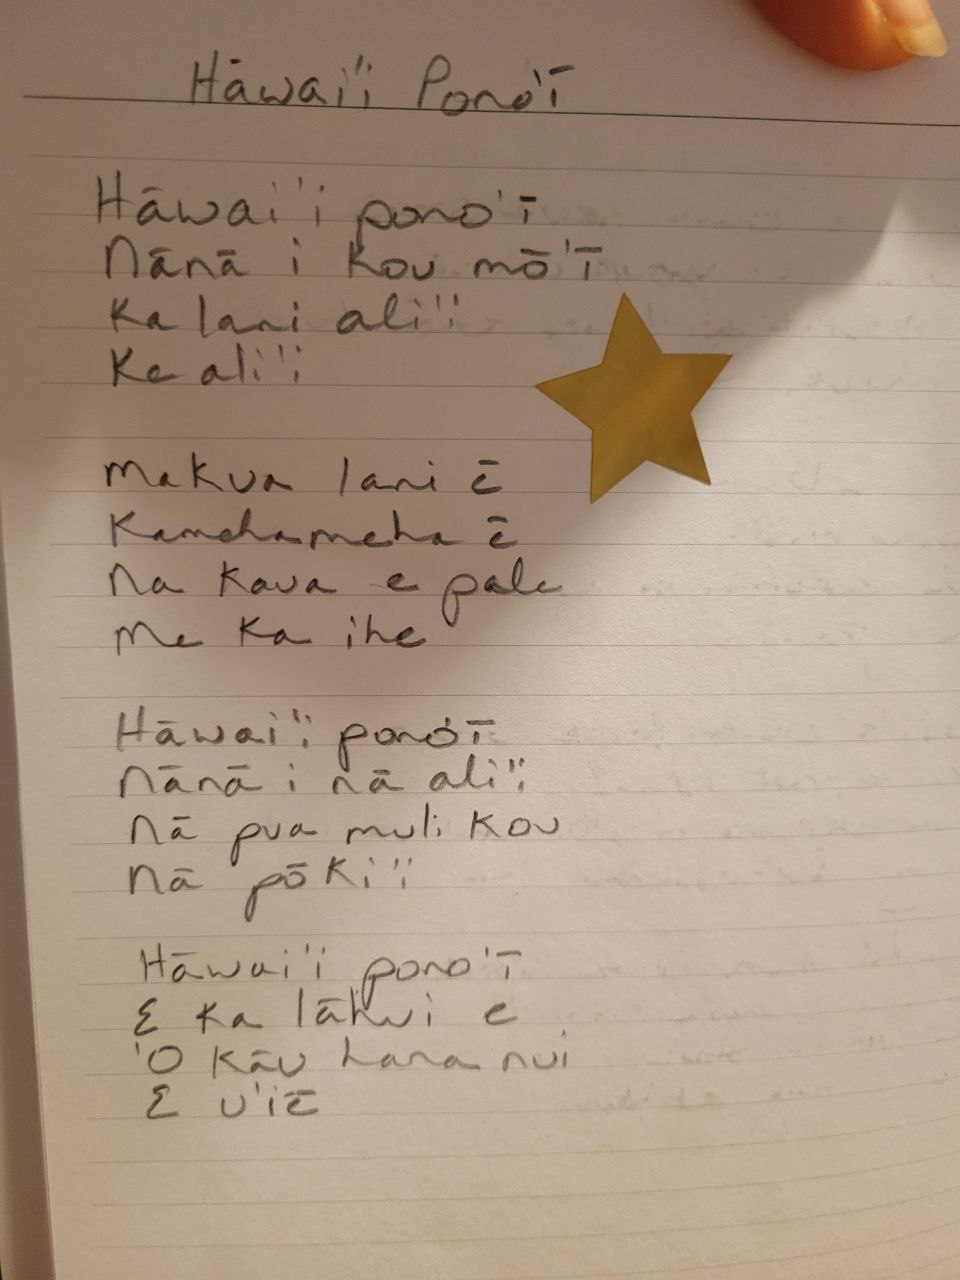 Hāwai'i Pono'ī
Hāwai'i pono'ī
Nānā i kou mō'ī
Ka lani ali'i
Ke ali'i
Makua lani ē
Kamehameha ē
Na kaua e pale
Me ka ihe
Hāwai'i pono'ī
Nānā i nā ali'i
Nā pua muli kou
Nā pōki'i
Hāwai'i pono'ī
E ka lāhui e
'O kāu hana nui
E u'iē